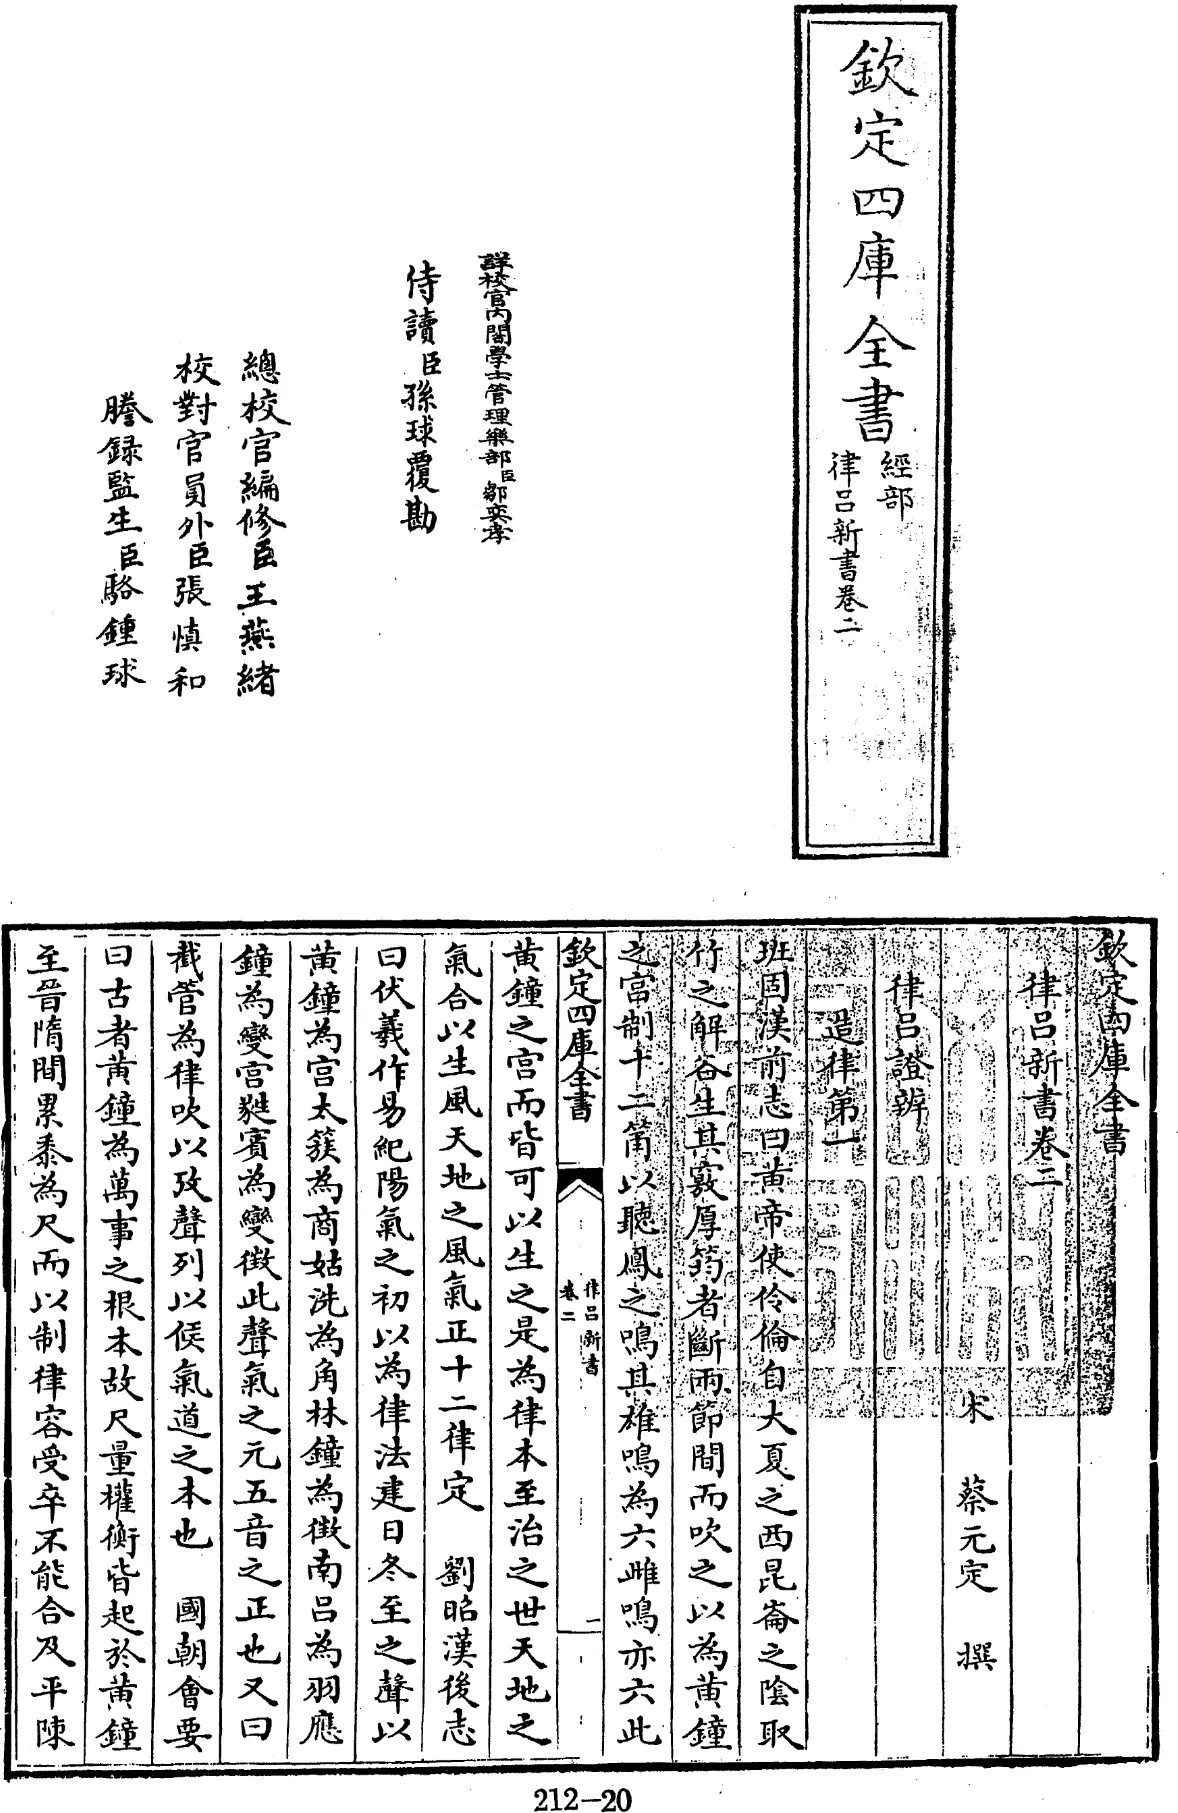 欽定四庫全書
經部
律呂新書卷二
詳校官內閣學士管理樂部臣鄒奕孝
侍讀臣孫球覆勘
總校官編修臣王燕緒
校對官員外臣張慎和
謄錄監生臣駱鍾球
欽定四庫全書
律呂新書卷二
宋 蔡元定 撰
律呂證辨
造律第一
班固漢前志曰黃帝使伶倫自大夏之西昆崙之陰取
竹之解谷生其竅厚笉者斷兩節間而吹之以為黃鐘
之宮制十二筩以聽鳳之鳴其雄鳴為六雌鳴亦六此
欽定四庫全書
律呂新書
卷二
一
黃鐘之宮而皆可以生之是為律本至治之世天地之
氣合以生風天地之風氣正十二律定 劉昭漢後志
曰伏羲作易紀陽氣之初以為律法建日冬至之聲以
黃鐘為宮太簇為商姑洗為角林鐘為徵南呂為羽應
鐘為變宮蕤賓為變徵此聲氣之元五音之正也又曰
截管為律吹以攷聲列以候氣道之本也 國朝會要
曰古者黃鐘為萬事之根本故尺量權衡皆起於黃鐘
至晉隋間累黍為尺而以制律容受卒不能合及平陳
212-20